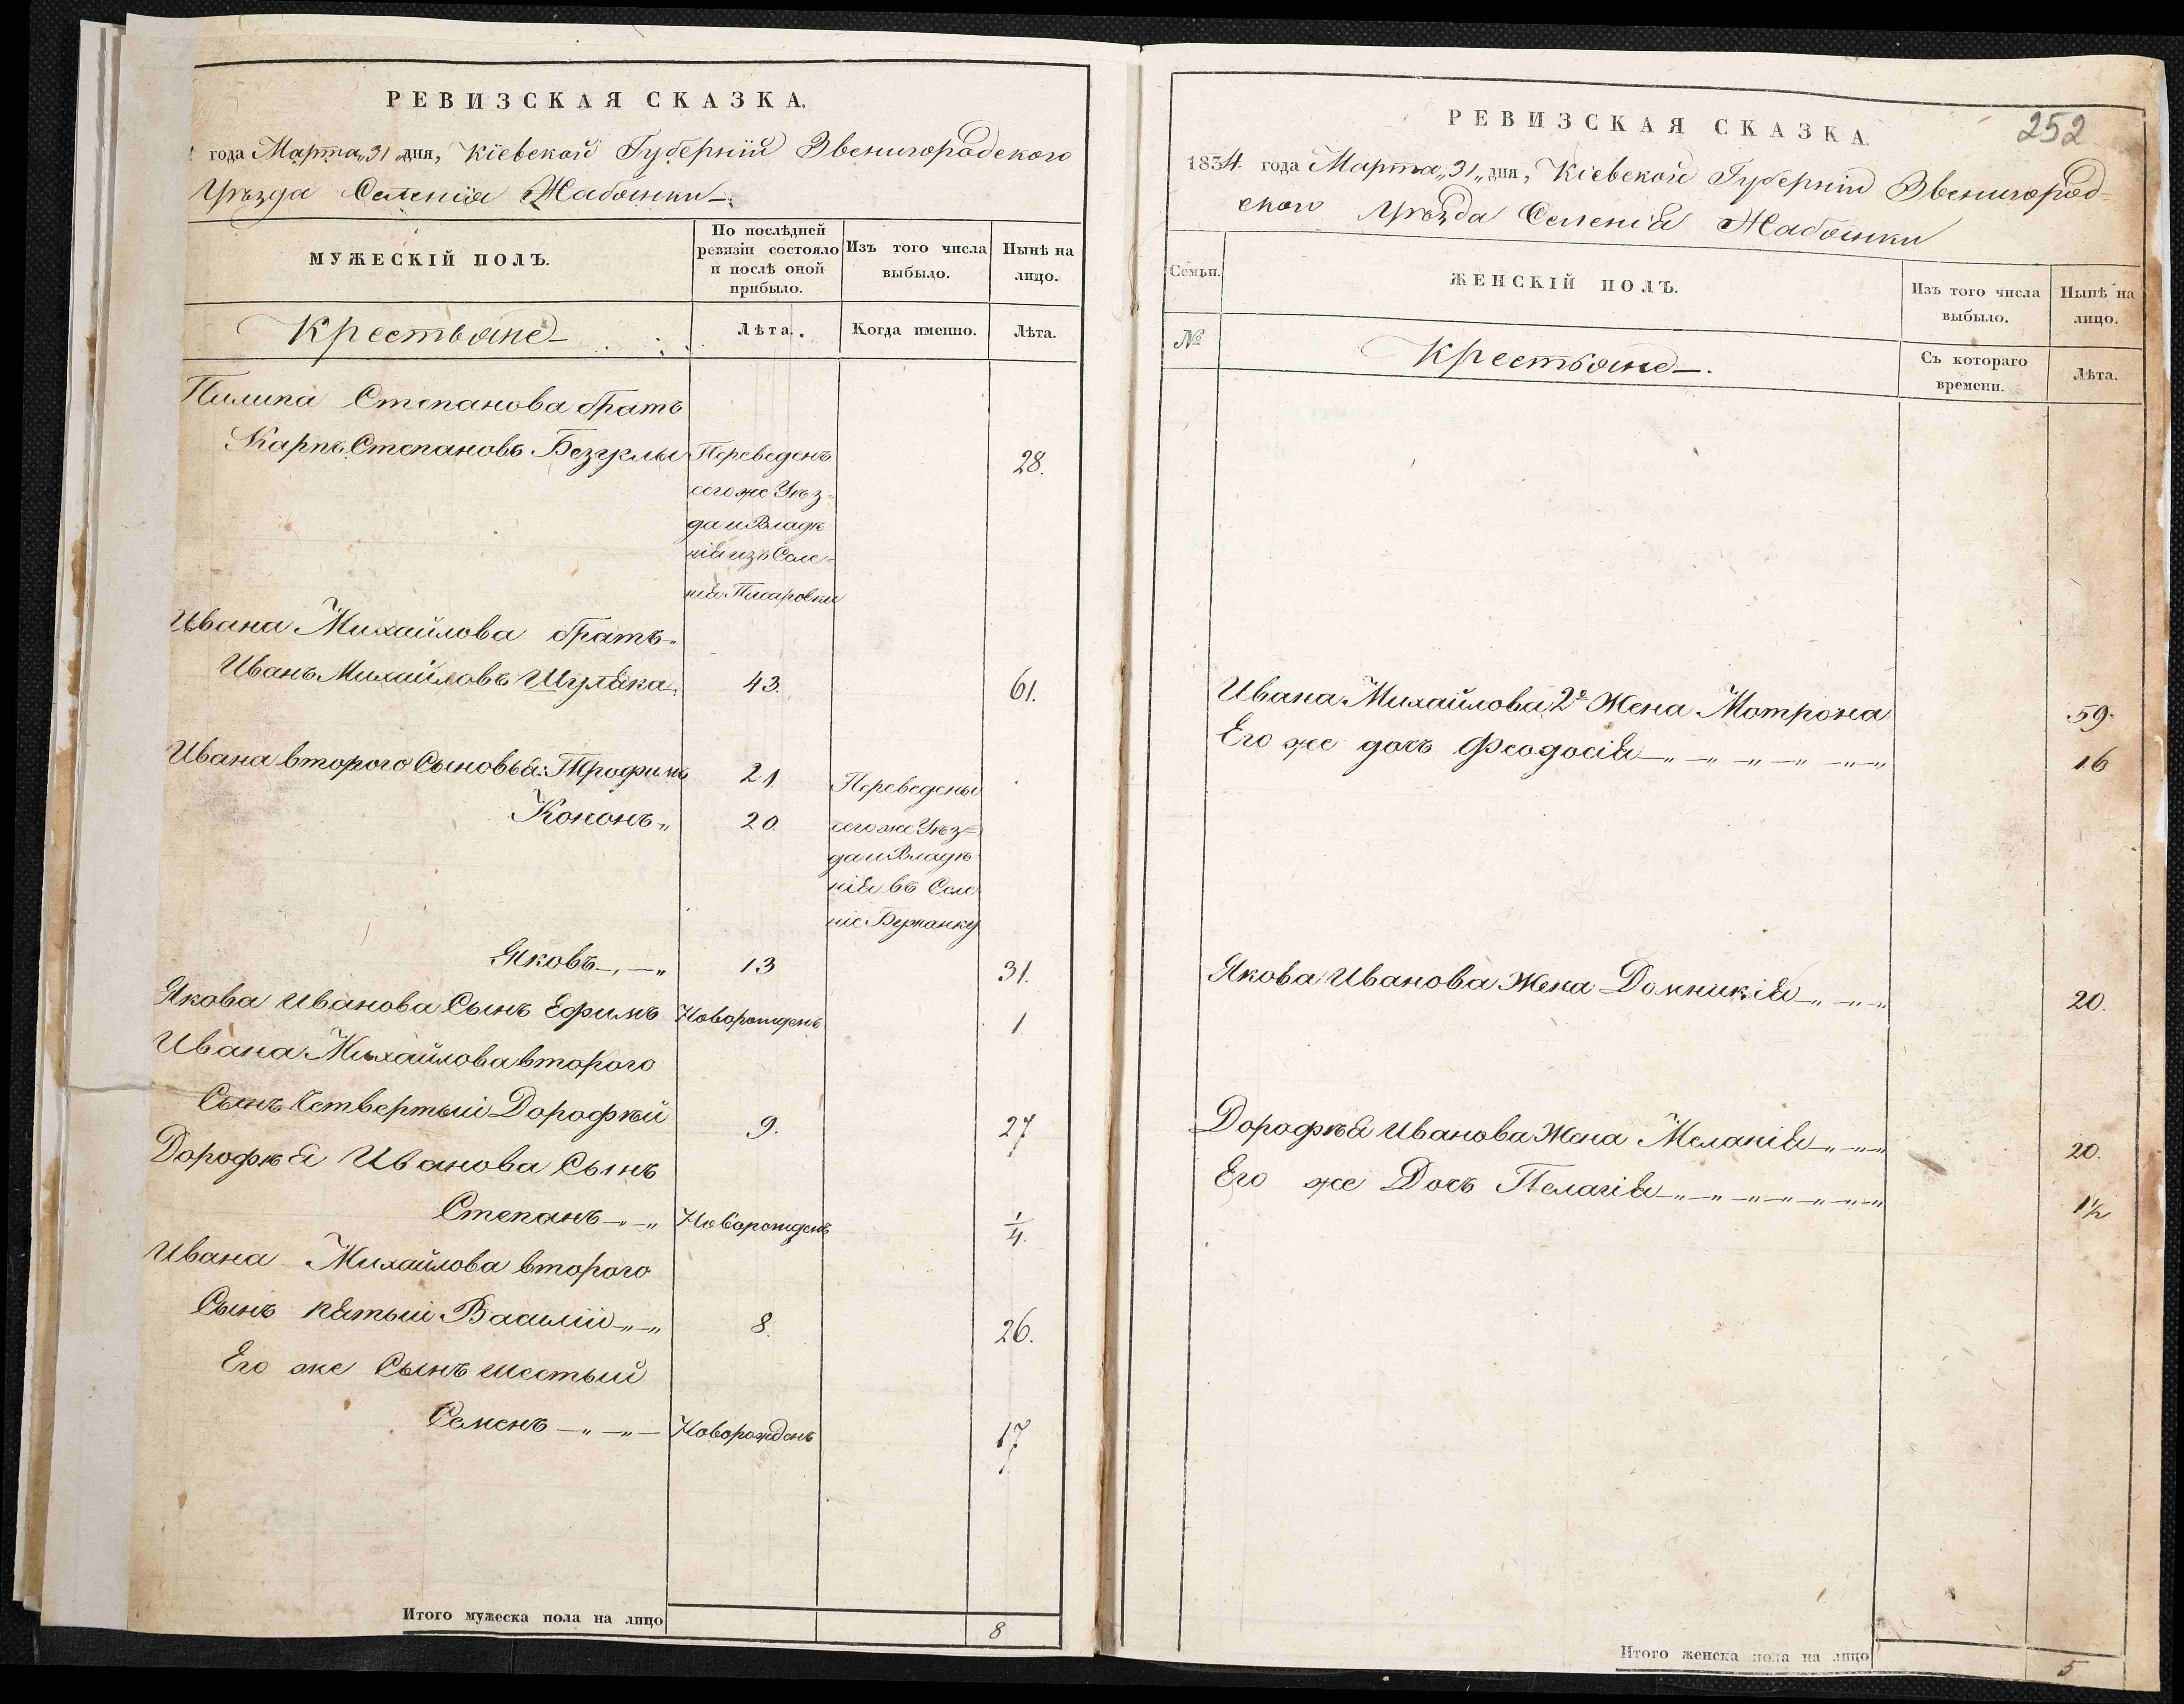 РЕВИЗСКАЯ СКАЗКА.
года Марта „31 дня, Кіевской Губерніи Звенигородского
Уѣзда Селенія Жабоинки
МУЖЕСКІЙ ПОЛЪ.
По послѣдней ревизіи состояло и послѣ оной прибыло.
Изъ того числа выбыло.
Нынѣ на лицо.
Крестьяне
Лѣта.
Когда именно.
Лѣта.
Пилипа Степанова братъ
Карпъ Степановъ Безуглы Переведенъ 28.
сего же Уѣз-
да и Владѣ
нія изъ Селе-
нія Писаровки
Ивана Михайлова братъ „
Иванъ Михайловъ Шуляка. 43. 61.
Ивана второго Сыновья: Трофимъ 21. Переведены
Кононъ „ 20. сего же Уѣз=
да и Владѣ
нія въ Селе
ніе Бужанку
Яковъ 13 31.
Якова Иванова Сынъ Ефимъ Новорожденъ 1.
Ивана Михайлова второго
Сынъ Четвертый Дорофѣй 9. 27
Дорофѣя Иванова Сынъ
Степанъ Новорожденъ 1/4.
Ивана Михайлова второго
Сынъ пятый Василій 8. 26.
Его же Сынъ шестый
Семенъ Новорожденъ 17
Итого мужеска пола на лицо 8
252
РЕВИЗСКАЯ СКАЗКА.
1834 года Марта „31„ дня, Кіевской Губерніи Звенигород=
ского Уѣзда Селенія Жабоинки
Семьи.
ЖЕНСКІЙ ПОЛЪ.
Изъ того числа выбыло.
Нынѣ на лицо.
№
Крестьяне.
Съ котораго времени.
Лѣта.
Ивана Михайлова 2º Жена Мотрона 59.
Его же дочь Феодосія 16
Якова Иванова Жена Домникія 20.
Дорофѣя Иванова Жена Меланія 20.
Его же Дочь Пелагія 1½
Итого женска пола на лицо 5